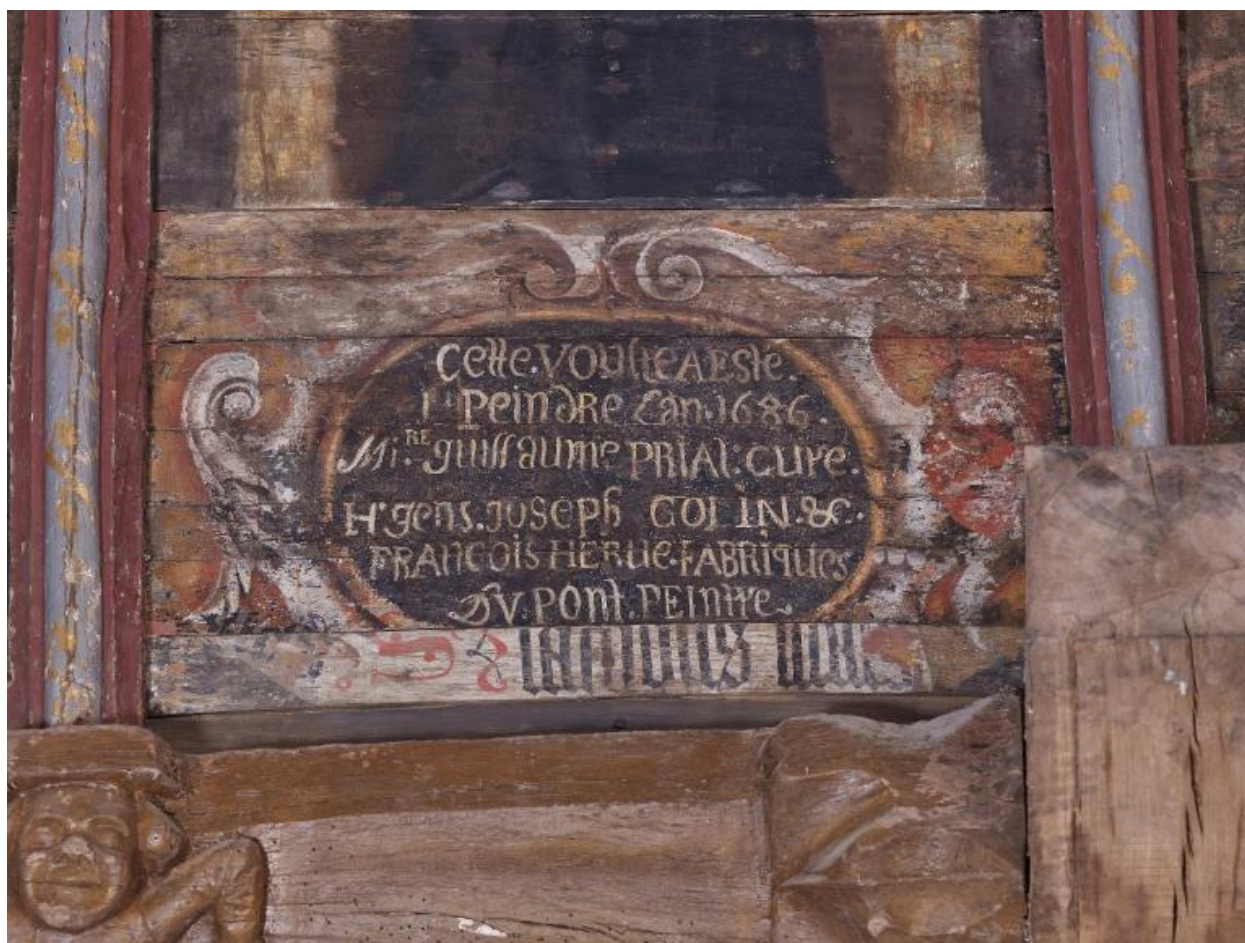 Cette.VOUSTEAESTE.
PEINDRE Lan.1686.
Mi.RE guillaume PRIAL:CURE.
Hr gens.JOSEPh COLIN.&.
FRANCOIS HERUE.FABRIQUES
DV.PONT.PEINTRE